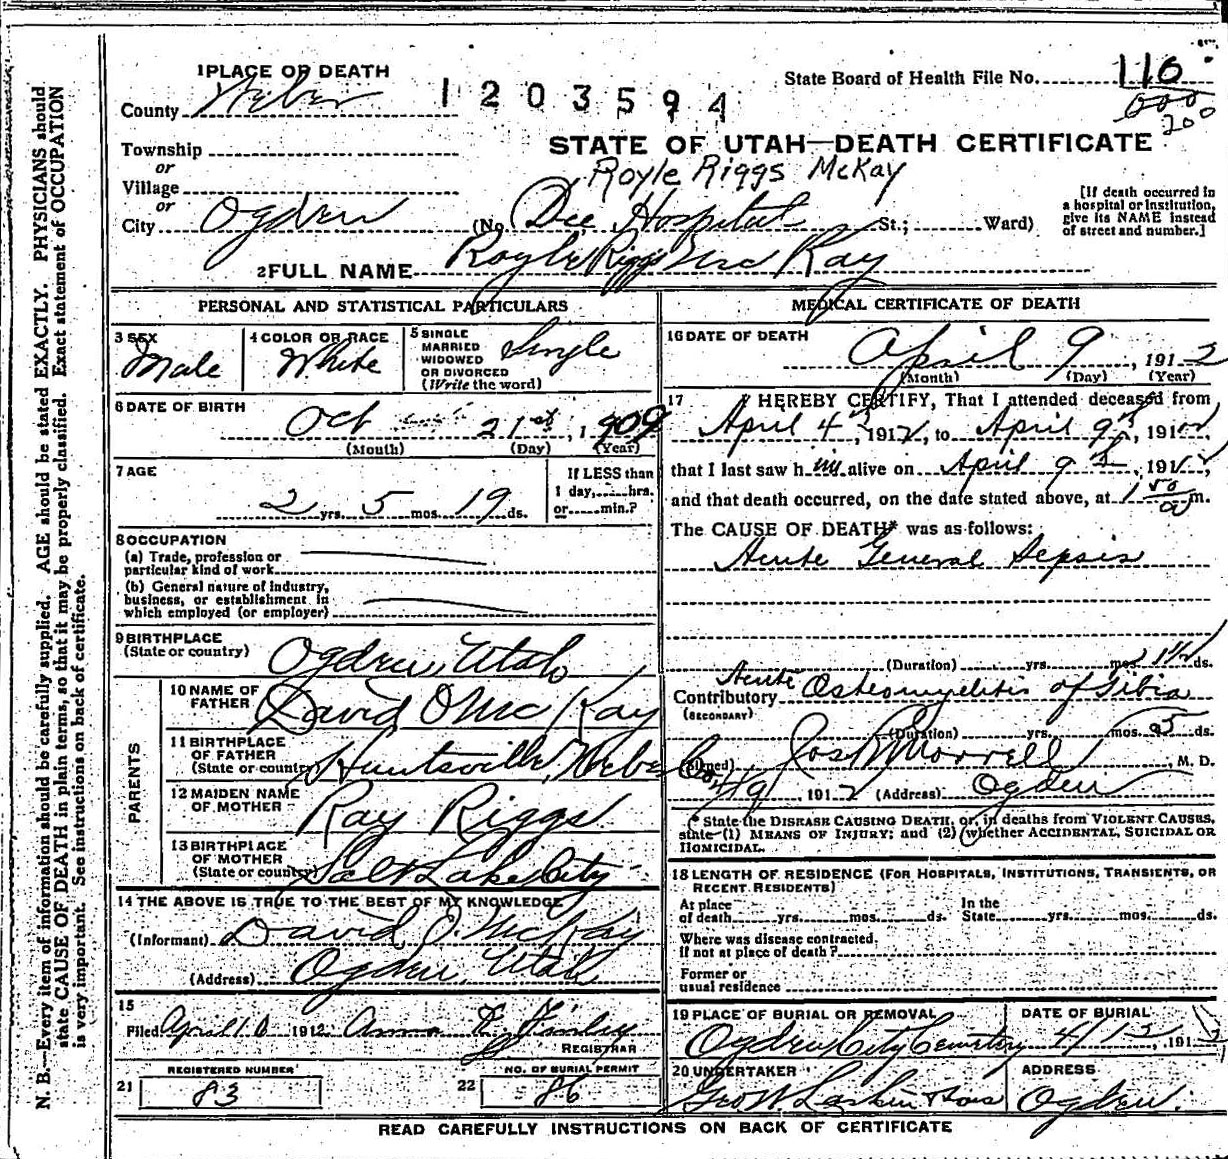 1 PLACE OF DEATH
County Weber
1203594
State Board of Health File No. 110
600
200
STATE OF UTAH—DEATH CERTIFICATE
Township
or
Village
or
City Ogden (No. Dee Hospital St.; Ward)
Royle Riggs McKay
[If death occurred in a hospital or institution, give its NAME instead of street and number.]
2 FULL NAME Royle Riggs Mc Kay
PERSONAL AND STATISTICAL PARTICULARS
3 SEX Male
4 COLOR OR RACE White
5 SINGLE MARRIED WIDOWED OR DIVORCED (Write the word) Single
6 DATE OF BIRTH
Oct 21st, 1909
(Month) (Day) (Year)
7 AGE
2 yrs. 5 mos. 19 ds.
If LESS than 1 day, hrs. or min.?
8 OCCUPATION
(a) Trade, profession or particular kind of work
(b) General nature of industry, business, or establishment in which employed (or employer)
9 BIRTHPLACE (State or country) Ogden, Utah
PARENTS
10 NAME OF FATHER David O Mc Kay
11 BIRTHPLACE OF FATHER (State or country) Huntsville, Weber Co.
12 MAIDEN NAME OF MOTHER Ray Riggs
13 BIRTHPLACE OF MOTHER (State or country) Salt Lake City
14 THE ABOVE IS TRUE TO THE BEST OF MY KNOWLEDGE
(Informant) David O. McKay
(Address) Ogden Utah
15
Filed April 10 1912 Anna
REGISTRAR
21 REGISTERED NUMBER 83
22 NO. OF BURIAL PERMIT 86
MEDICAL CERTIFICATE OF DEATH
16 DATE OF DEATH
April 9, 1912
(Month) (Day) (Year)
17 I HEREBY CERTIFY, That I attended deceased from
April 4, 1912, to April 9, 1912,
that I last saw him alive on April 9, 1912,
and that death occurred, on the date stated above, at 1 50 a m.
The CAUSE OF DEATH* was as follows:
Acute General Sepsis
(Duration) yrs. mos. ds.
Contributory (SECONDARY) Acute Osteomyelitis of Tibia
(Duration) yrs. mos. ds.
(Signed) Jos R Morrell, M. D.
4/9, 1912 (Address) Ogden
* State the DISEASE CAUSING DEATH, or, in deaths from VIOLENT CAUSES, state (1) MEANS OF INJURY; and (2) whether ACCIDENTAL, SUICIDAL OR HOMICIDAL.
18 LENGTH OF RESIDENCE (FOR HOSPITALS, INSTITUTIONS, TRANSIENTS, OR RECENT RESIDENTS)
At place of death yrs. mos. ds. In the State yrs. mos. ds.
Where was disease contracted, if not at place of death?
Former or usual residence
19 PLACE OF BURIAL OR REMOVAL Ogden City Cemetery
DATE OF BURIAL 4/12, 191
20 UNDERTAKER Geo W. Larkin & Sons
ADDRESS Ogden.
READ CAREFULLY INSTRUCTIONS ON BACK OF CERTIFICATE
N. B.—Every item of information should be carefully supplied. AGE should be stated EXACTLY. PHYSICIANS should
state CAUSE OF DEATH in plain terms, so that it may be properly classified. Exact statement of OCCUPATION
is very important. See instructions on back of certificate.